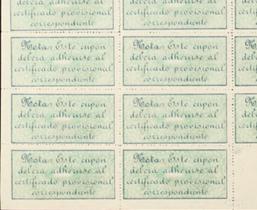 debera adherirse al
certificado provisional
correspondiente
debera adherirse al
certificado provisional
correspondiente
Nota: Este cupon
debera adherirse al
certificado provisional
correspondiente
Nota: Este cupon
debera adherirse al
certificado provisional
correspondiente
Nota: Este cupon
debera adherirse al
certificado provisional
correspondiente
Nota: Este cupon
debera adherirse al
certificado provisional
correspondiente
Nota: Este cupon
debera adherirse al
certificado provisional
correspondiente
Nota: Este cupon
debera adherirse al
certificado provisional
correspondiente